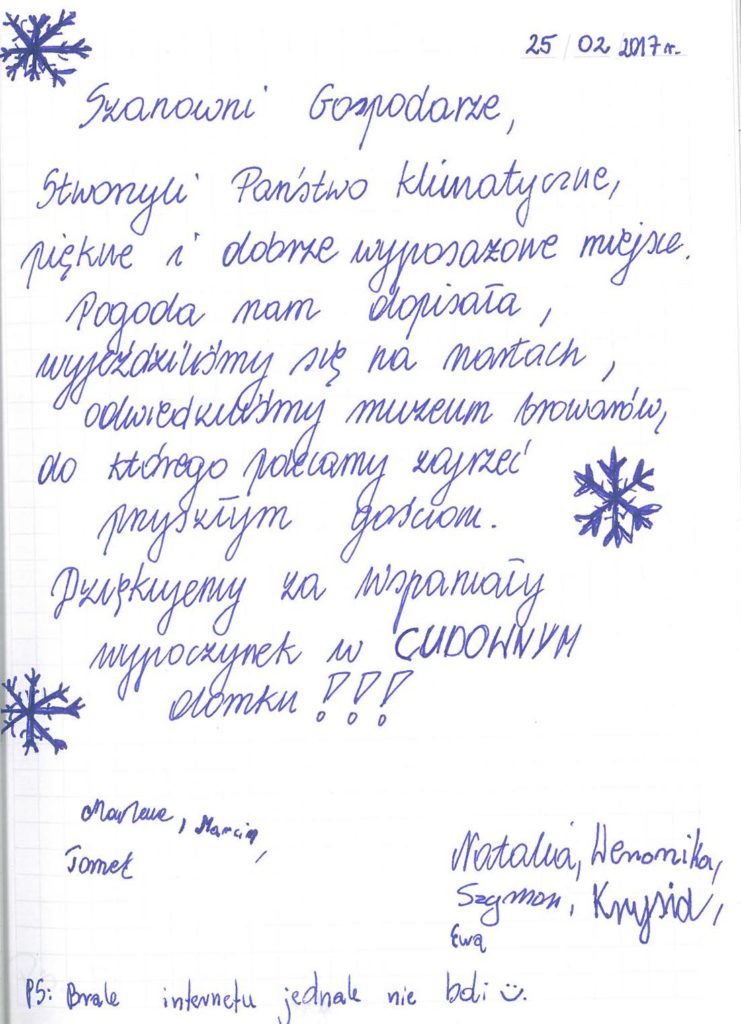 25 / 02 2017 r.
Szanowni Gospodarze,
Stworzyli Państwo klimatyczne,
piękne i dobrze wyposażone miejsce.
Pogoda nam dopisała,
wyjeździliśmy się na nartach,
odwiedziliśmy muzeum browarów,
do którego polecamy zajrzeć
przyszłym gościom.
Dziękujemy za wspaniały
wypoczynek w CUDOWNYM
domku !!!
Marlena, Marcin,
Tomek
Natalia, Weronika,
Szymon, Krysia,
Ewa
PS: Brak internetu jednak nie boli